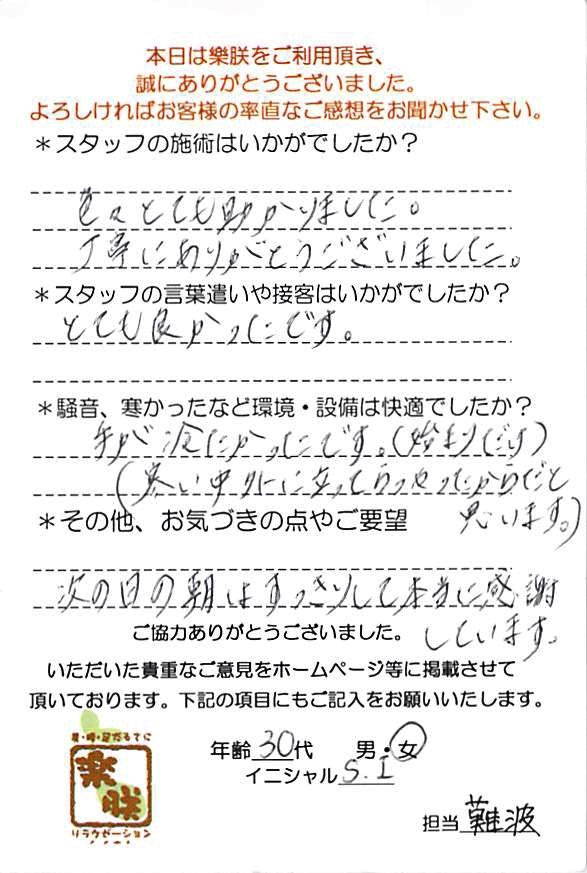 本日は樂朕をご利用頂き、
誠にありがとうございました。
よろしければお客様の率直なご感想をお聞かせ下さい。
＊スタッフの施術はいかがでしたか？
色々とても助かりました。
丁寧にありがとうございました。
＊スタッフの言葉遣いや接客はいかがでしたか？
とても良かったです。
＊騒音、寒かったなど環境・設備は快適でしたか？
手が冷たかったです。(始まりだけ)
(寒い中外に立ってらっしゃったからだと
思います。)
＊その他、お気づきの点やご要望
次の日の朝はすっきりして本当に感謝
しています。
ご協力ありがとうございました。
いただいた貴重なご意見をホームページ等に掲載させて
頂いております。下記の項目にもご記入をお願いいたします。
年齢 30代 男・女
イニシャル S.I
樂朕
リラクゼーション
担当 難波